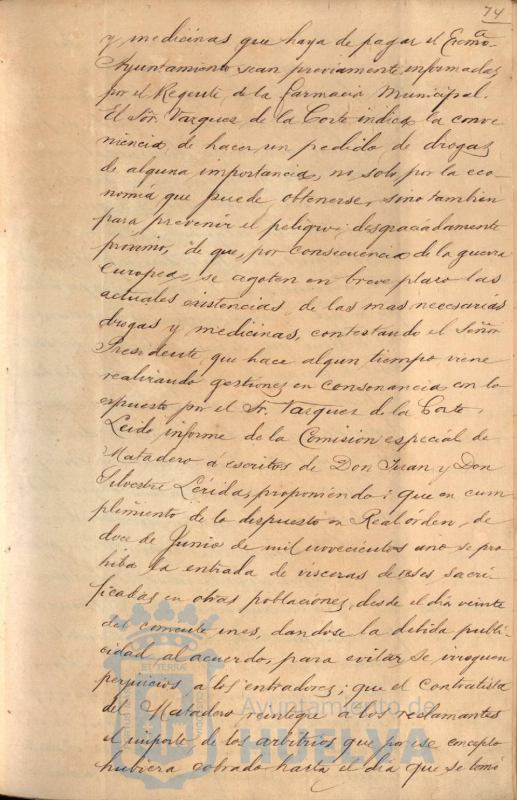 74
y medicinas que haya de pagar el Excmo.
Ayuntamiento sean previamente informadas
por el Regente de la farmacia Municipal.
El Sr. Vazquez de la Corte indica la conve
niencia de hacer un pedido de drogas
de alguna importancia, no solo por la eco
nomía que puede obtenerse, sino tambien
para prevenir el peligro, desgraciadamente
próximo, de que, por consecuencia de la guerra
europea, se agoten en breve plazo las
actuales existencias de las mas necesarias
drogas y medicinas, contestando el Señor
Presidente que hace algun tiempo viene
realizando gestiones en consonancia con lo
espuesto por el Sr. Vazquez de la Corte.
Leido informe de la Comisión especial de
Matadero á escritos de Don Juan y Don
Silvestre Lérida, proponiendo: que en cum
plimiento de lo dispuesto en Real órden, de
doce de Junio de mil novecientos uno se pro
hiba la entrada de visceras de reses sacri
ficadas en otras poblaciones, desde el día veinte
del corriente mes, dandose la debida publi
cidad al acuerdo, para evitar se irroguen
perjuicios á los entradores; que el Contratista
del Matadero reintegre á los reclamantes
el importe de los arbitrios que por ese concepto
hubiera cobrado hasta el día que se tomó
Ayuntamiento de
HUELVA